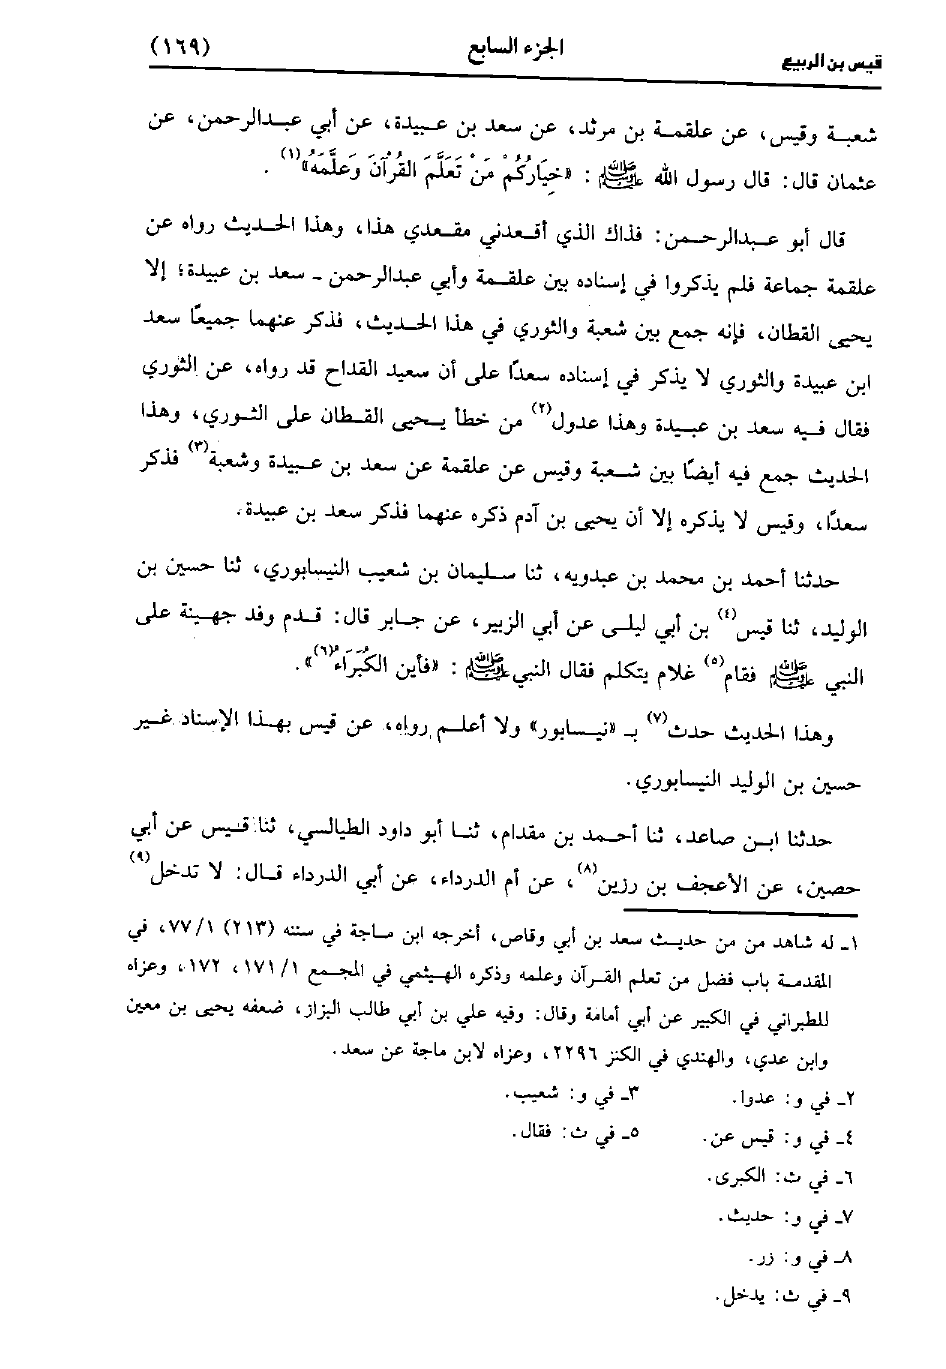 قيس بن الربيع الجزء السابع (١٦٩)
شعبة وقيس، عن علقمة بن مرثد، عن سعد بن عبيدة، عن أبي عبدالرحمن، عن
عثمان قال: قال رسول الله ﷺ : «خِيَارُكُمْ مَنْ تَعَلَّمَ القُرْآنَ وَعَلَّمَهُ»(١) .
قال أبو عبدالرحمن: فذاك الذي أقعدني مقعدي هذا، وهذا الحديث رواه عن
علقمة جماعة فلم يذكروا في إسناده بين علقمة وأبي عبدالرحمن ـ سعد بن عبيدة؛ إلا
يحيى القطان، فإنه جمع بين شعبة والثوري في هذا الحديث، فذكر عنهما جميعًا سعد
ابن عبيدة والثوري لا يذكر في إسناده سعدًا على أن سعيد القداح قد رواه، عن الثوري
فقال فيه سعد بن عبيدة وهذا عدول(٢) من خطأ يحيى القطان على الثوري، وهذا
الحديث جمع فيه أيضًا بين شعبة وقيس عن علقمة عن سعد بن عبيدة وشعبة(٣) فذكر
سعدًا، وقيس لا يذكره إلا أن يحيى بن آدم ذكره عنهما فذكر سعد بن عبيدة.
حدثنا أحمد بن محمد بن عبدويه، ثنا سليمان بن شعيب النيسابوري، ثنا حسين بن
الوليد، ثنا قيس(٤) بن أبي ليلى عن أبي الزبير، عن جابر قال: قدم وفد جهينة على
النبي ﷺ فقام(٥) غلام يتكلم فقال النبي ﷺ : «فأين الكُبَرَاءُ(٦)».
وهذا الحديث حدث(٧) بـ «نيسابور» ولا أعلم رواه، عن قيس بهذا الإسناد غير
حسين بن الوليد النيسابوري.
حدثنا ابن صاعد، ثنا أحمد بن مقدام، ثنا أبو داود الطيالسي، ثنا قيس عن أبي
حصين، عن الأعجف بن رزين(٨)، عن أم الدرداء، عن أبي الدرداء قال: لا تدخل(٩)
١ـ له شاهد من من حديث سعد بن أبي وقاص، أخرجه ابن ماجة في سننه (٢١٣) ٧٧/١، في
المقدمة باب فضل من تعلم القرآن وعلمه وذكره الهيثمي في المجمع ١٧١/١، ١٧٢، وعزاه
للطبراني في الكبير عن أبي أمامة وقال: وفيه علي بن أبي طالب البزاز، ضعفه يحيى بن معين
وابن عدي، والهندي في الكنز ٢٢٩٦، وعزاه لابن ماجة عن سعد.
٢ـ في و: عدوا. ٣ـ في و: شعيب.
٤ـ في و: قيس عن. ٥ـ في ث: فقال.
٦ـ في ث: الكبرى.
٧ـ في و: حديث.
٨ـ في و: زر.
٩ـ في ث: يدخل.